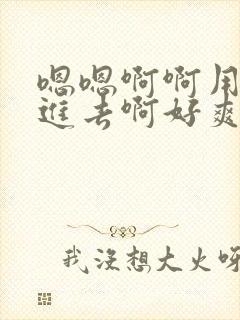 嗯嗯啊啊用
进去啊好爽
我没想大火呀